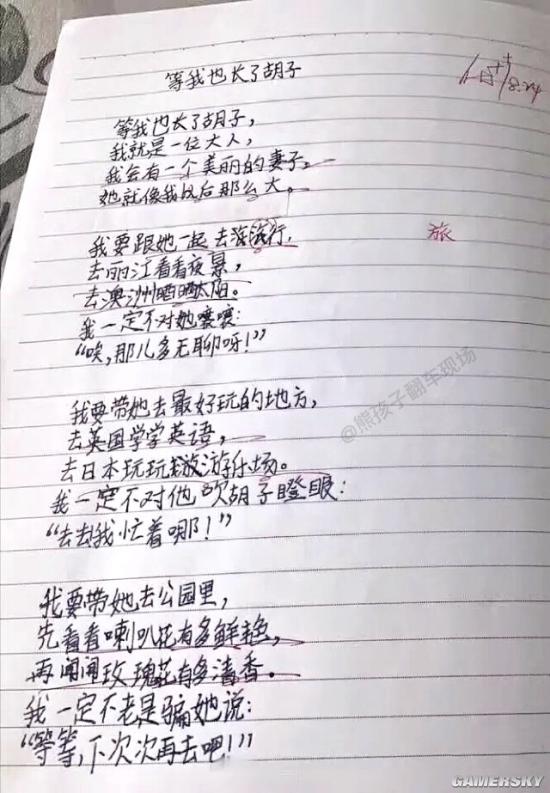 等我也长了胡子
等我也长了胡子,
我就是一位大人,
我会有一个美丽的妻子,
她就像我以后那么大。
我要跟她一起去旅行,
旅
去丽江看看夜景,
去澳洲晒晒太阳。
我一定不对她嚷嚷:
“唉,那儿多无聊呀!”
我要带她去最好玩的地方,
去英国学学英语,
去日本玩玩游乐场。
我一定不对他吹胡子瞪眼:
“去去我忙着哪!”
我要带她去公园里,
先看看喇叭花有多鲜艳,
再闻闻玫瑰花有多清香。
我一定不老是骗她说:
“等等,下次次再去吧!”
8.24
@熊孩子翻车现场
GAMERSKY